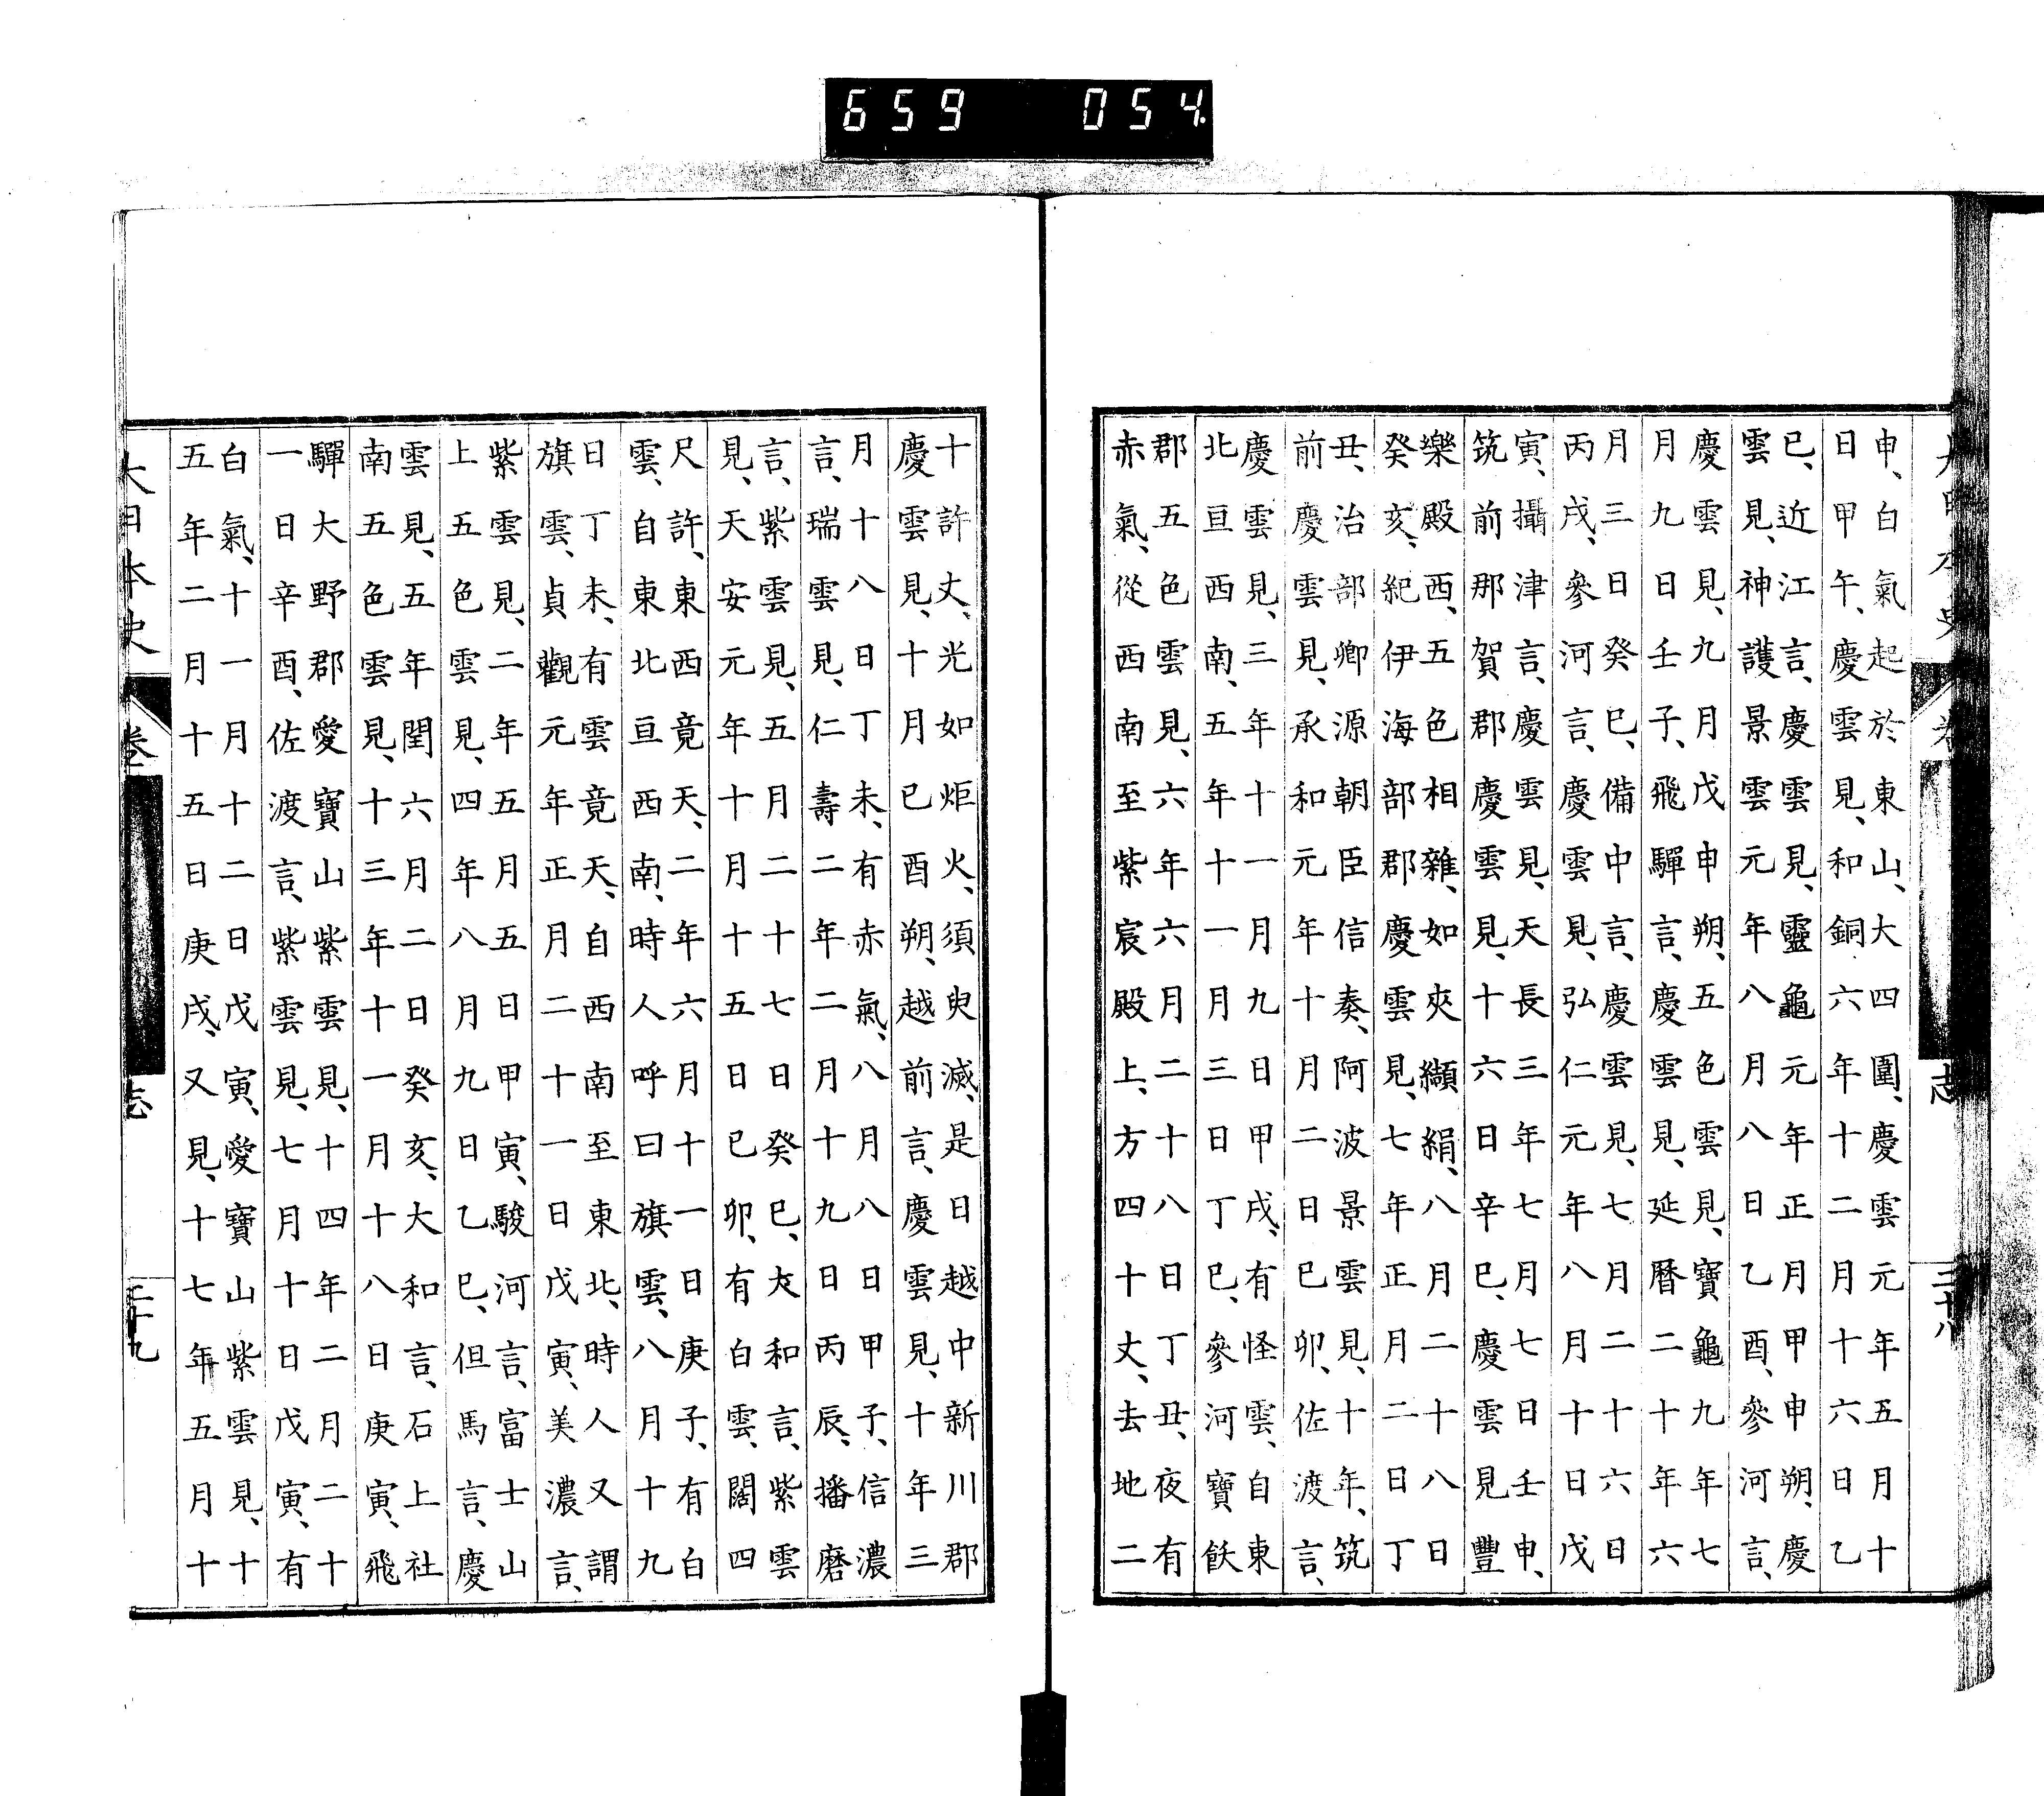 大日本史 卷 志 三十八
申、白氣起於東山、大四圍、慶雲元年五月十
日甲午、慶雲見、和銅六年十二月十六日乙
巳、近江言、慶雲見、靈龜元年正月甲申朔、慶
雲見、神護景雲元年八月八日乙酉、參河言、
慶雲見、九月戊申朔、五色雲見、寶龜九年七
月九日壬子、飛驒言、慶雲見、延暦二十年六
月三日癸巳、備中言、慶雲見、七月二十六日
丙戌、參河言、慶雲見、弘仁元年八月十日戊
寅、攝津言、慶雲見、天長三年七月七日壬申、
筑前那賀郡慶雲見、十六日辛巳、慶雲見豐
樂殿西、五色相雜、如夾纈絹、八月二十八日
癸亥、紀伊海部郡慶雲見、七年正月二日丁
丑、治部卿源朝臣信奏、阿波景雲見、十年、筑
前慶雲見、承和元年十月二日己卯、佐渡言、
慶雲見、三年十一月九日甲戌、有怪雲、自東
北亘西南、五年十一月三日丁巳、參河寶飫
郡五色雲見、六年六月二十八日丁丑、夜有
赤氣、從西南至紫宸殿上、方四十丈、去地二
十許丈、光如炬火、須臾滅、是日越中新川郡
慶雲見、十月己酉朔、越前言、慶雲見、十年三
月十八日丁未、有赤氣、八月八日甲子、信濃
言、瑞雲見、仁壽二年二月十九日丙辰、播磨
言、紫雲見、五月二十七日癸巳、大和言、紫雲
見、天安元年十月十五日己卯、有白雲、闊四
尺許、東西竟天、二年六月十一日庚子、有白
雲、自東北亘西南、時人呼曰旗雲、八月十九
日丁未、有雲竟天、自西南至東北、時人又謂
旗雲、貞觀元年正月二十一日戊寅、美濃言、
紫雲見、二年五月五日甲寅、駿河言、富士山
上五色雲見、四年八月九日乙巳、但馬言、慶
雲見、五年閏六月二日癸亥、大和言、石上社
南五色雲見、十三年十一月十八日庚寅、飛
驒大野郡愛寶山紫雲見、十四年二月二十
一日辛酉、佐渡言、紫雲見、七月十日戊寅、有
白氣、十一月十二日戊寅、愛寶山紫雲見、十
五年二月十五日庚戌、又見、十七年五月十
大日本史 卷 志 三十九
659 054